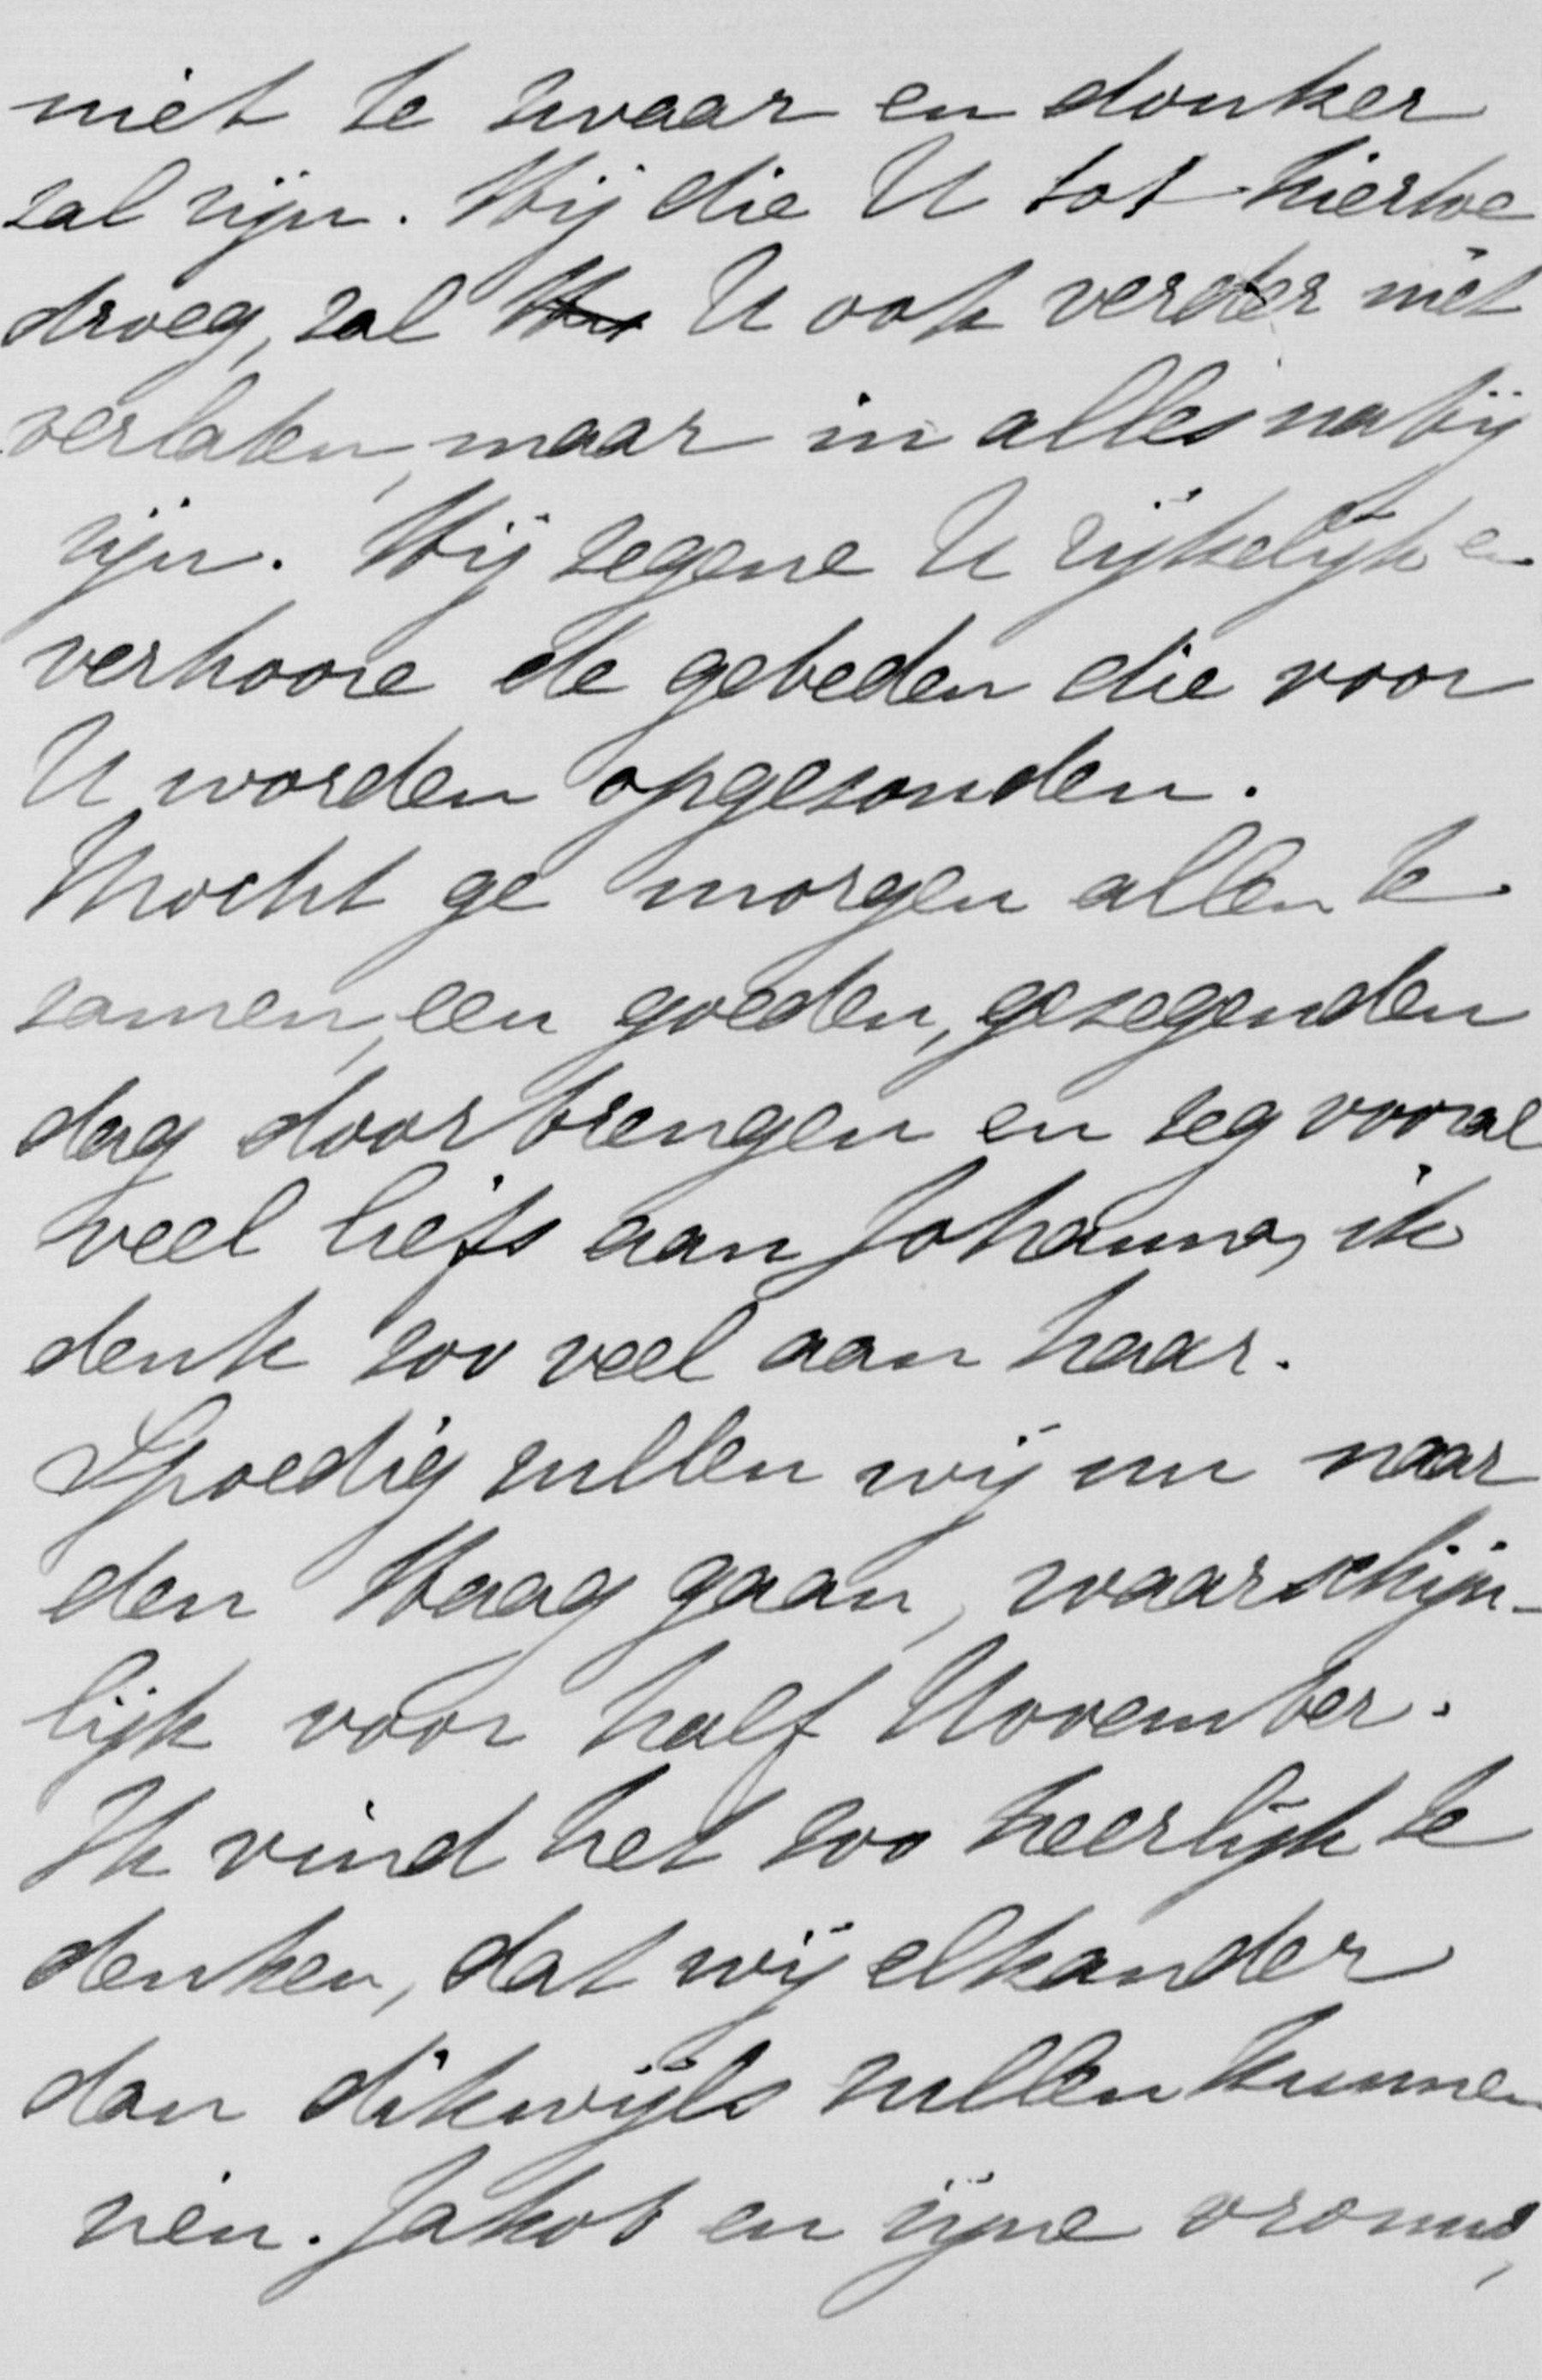 niet te zwaar en donker
zal zijn. Hij die U tot hiertoe
droeg, zal U ook verder niet
verlaten, maar in alles nabij
zijn. Hij zegene U rijkelijk en
verhoore de gebeden die voor
U worden opgezonden.
Mocht ge morgen allen te
zamen, een goeden, gezegenden
dag doorbrengen en zeg vooral
veel liefs aan Johanna, ik
denk zoo veel aan haar.
Spoedig zullen wij nu naar
den Haag gaan, waarschijn-
lijk voor half November.
Ik vind het zoo heerlijk te
denken, dat wij elkander
dan dikwijls zullen kunnen
zien. Jakob en zijne vrouw,